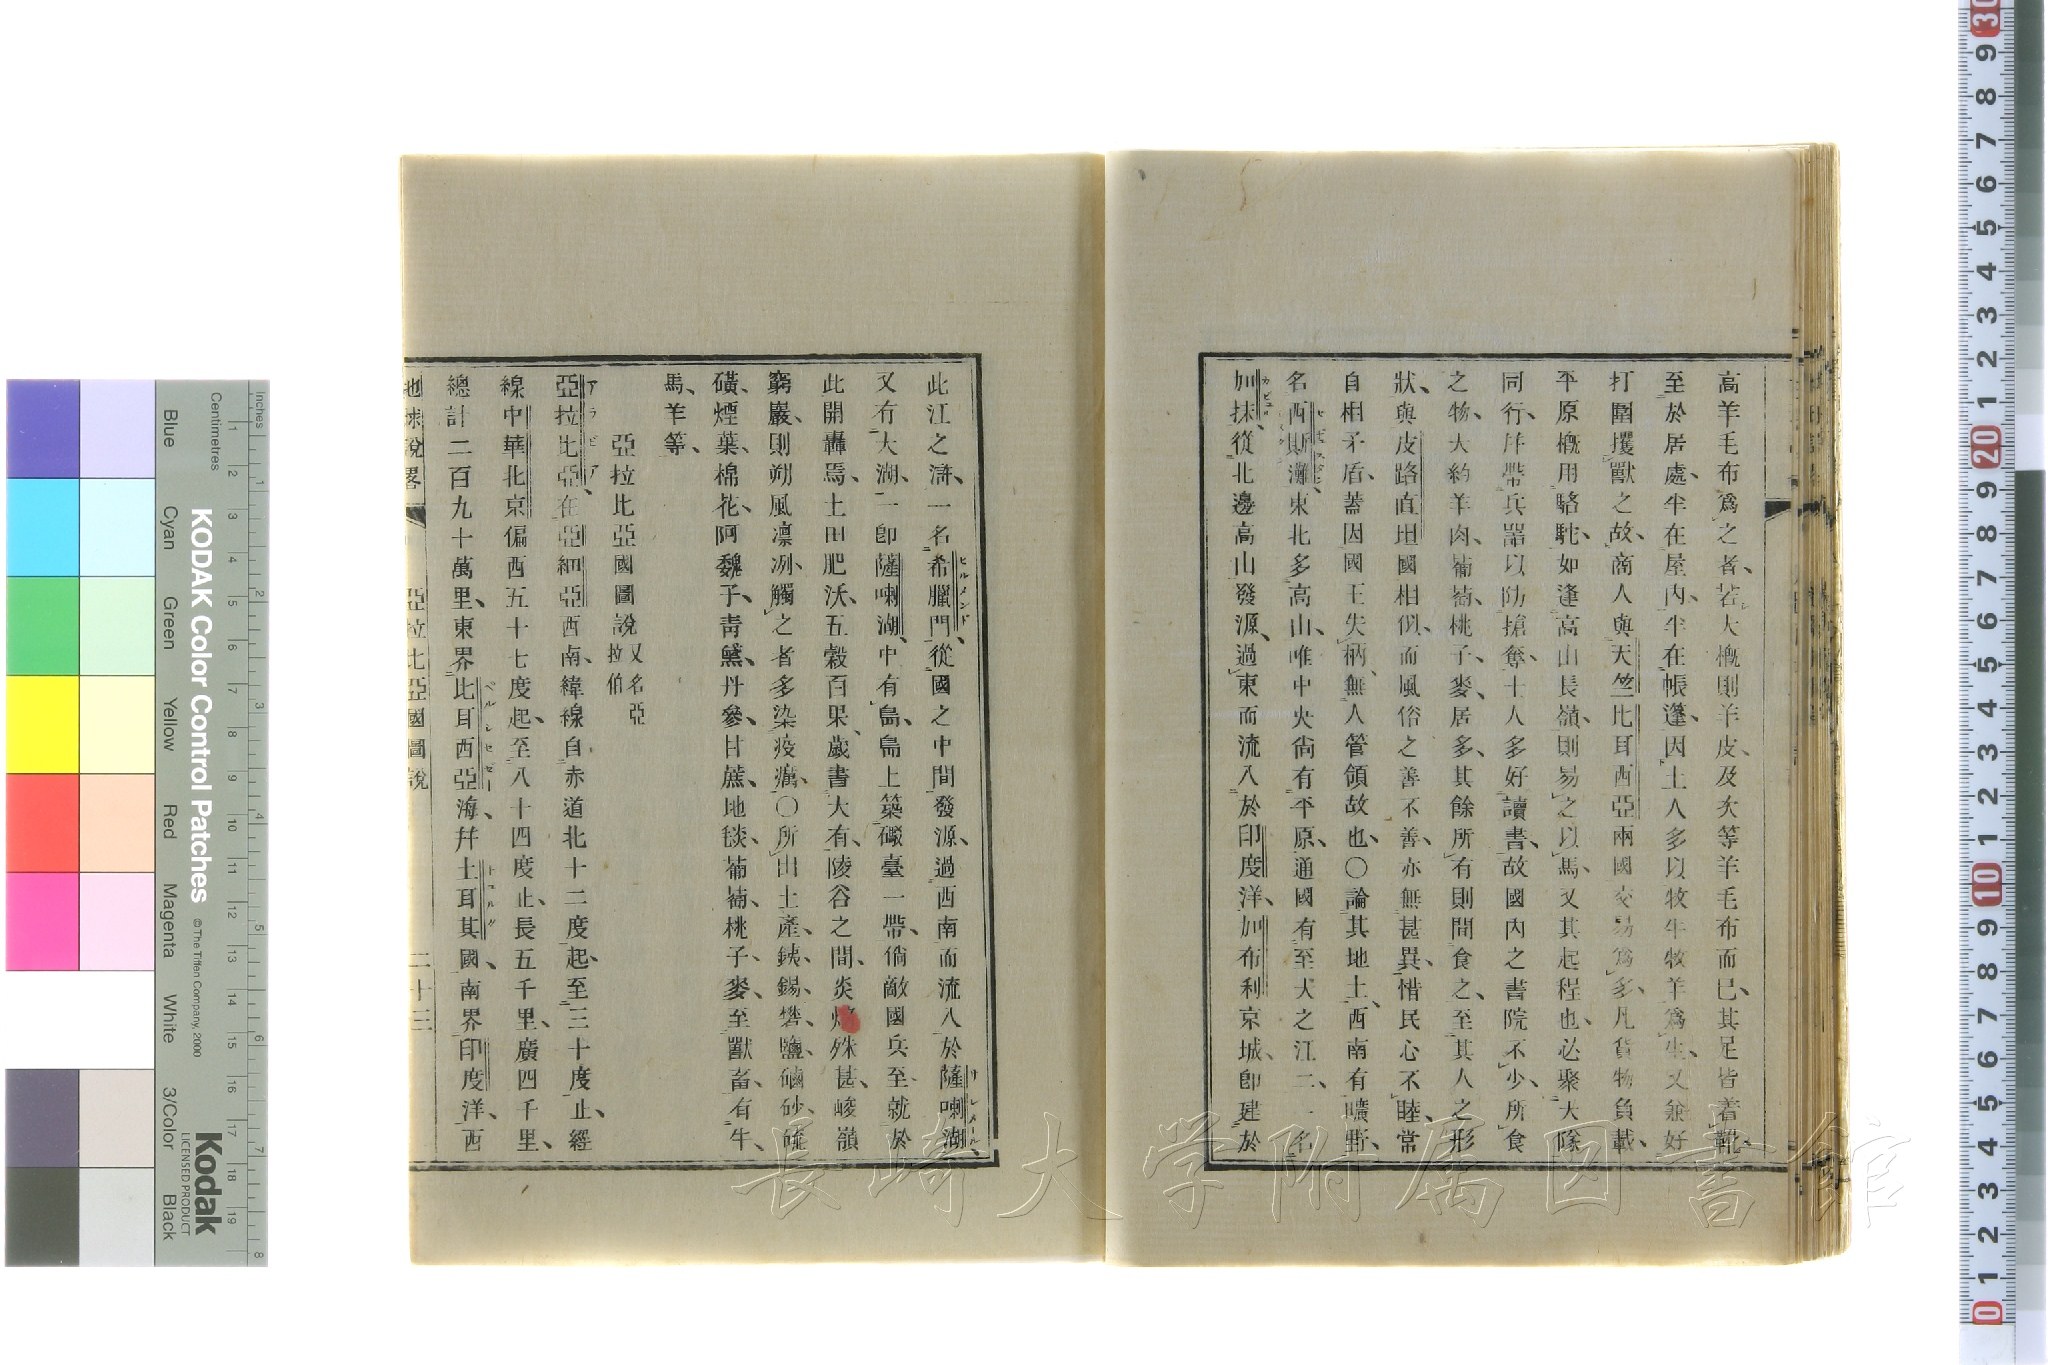 高羊毛布爲之者、若大概則羊皮、及次等羊毛布而已、其足皆著靴、
至於居處、半在屋内、半在帳蓬、因土人多以牧牛牧羊爲生、又兼好
打圍攫獸之故、商人與天竺比耳西亞兩國交易爲多、凡貨物負載、
平原概用駱駝、如逢高山長嶺、則易之以馬、又其起程也、必聚大隊
同行、幷帶兵器以防搶奪、士人多好讀書、故國内之書院不少、所食
之物、大約羊肉、葡萄、桃子、麥、居多、其餘所有則間食之、至其人之形
狀、與皮路直坦國相似、而風俗之善不善、亦無甚異、惜民心不睦、常
自相矛盾、蓋因國王失柄、無人管領故也、〇論其地土、西南有曠野、
名西斯灘、東北多高山、唯中央尚有平原、通國有至大之江二、一名
加抹、從北邊高山發源、過東而流入於印度洋、加布利京城、卽建於
此江之滸、一名希臘門、從國之中間發源、過西南而流入於薩喇湖、
ヒルメンド
サレメール
又有大湖、一卽薩喇湖、中有島、島上築礮臺一帶、倘敵國兵至、就於
此開轟焉、土田肥沃、五穀百果、歲書大有、陵谷之間、炎 殊甚、峻嶺
窮巖、則朔風凛冽、觸之者多染疫癘、〇所出土產、銕、錫、礬、鹽、磠砂、硫
磺、煙葉、棉花、阿魏、子靑、黛、丹參、甘蔗、地毯、葡萄、桃子、麥、至獸畜、有牛、
馬、羊等、
亞拉比亞國圖說 又名亞拉伯
アラビア
亞拉比亞、在亞細亞西南、緯線自赤道北十二度起、至三十度止、經
線中華北京偏西五十七度起、至八十四度止、長五千里、廣四千里、
總計二百九十萬里、東界比耳西亞海幷土耳其國、南界印度洋、西
地球說畧 亞拉比亞國圖說 二十三
長崎大学附属図書館
KODAK Color Control Patches
© The Tiffen Company, 2000
Kodak
LICENSED PRODUCT
Inches
Centimetres
Blue
Cyan
Green
Yellow
Red
Magenta
White
3/Color
Black